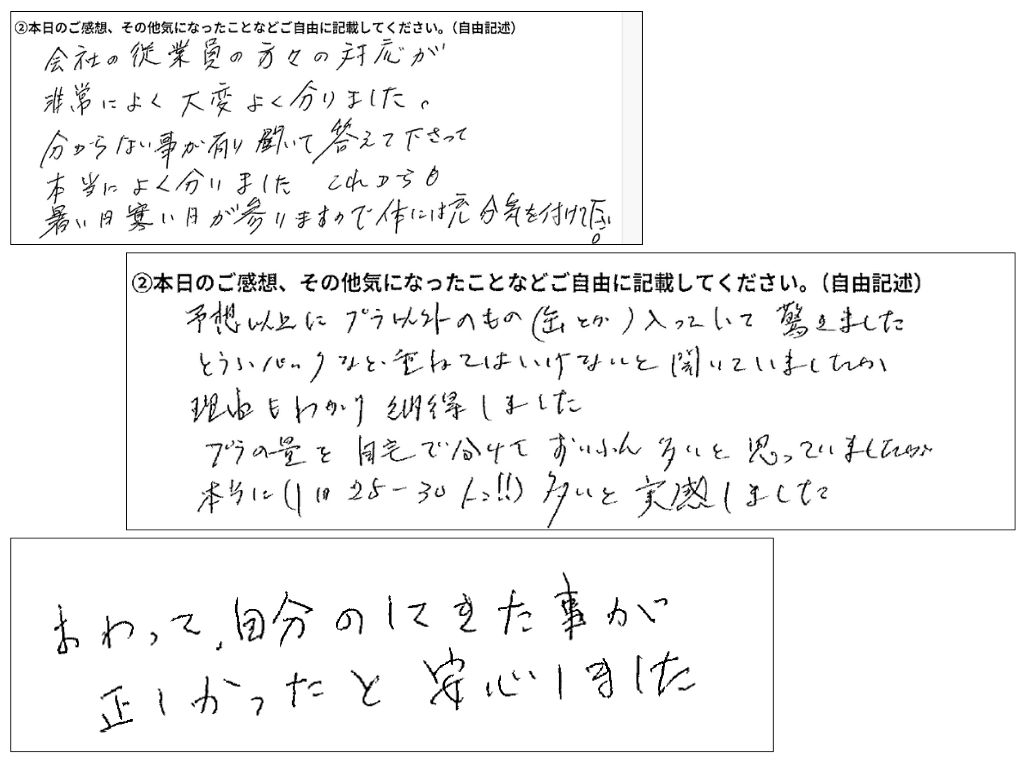 ②本日のご感想、その他気になったことなどご自由に記載してください。（自由記述）
会社の従業員の方々の対応が
非常によく大変よく分りました。
分からない事が有り聞いて答えて下さって
本当によく分いました これからも
暑い日寒い日が参りますので体には充分気を付けて下さい。
②本日のご感想、その他気になったことなどご自由に記載してください。（自由記述）
予想以上にプラ以外のもの(缶とか)入っていて驚きました
とうふパックなど重ねてはいけないと聞いていましたが
理由もわかり納得しました
プラの量を自宅で分けて ずいぶん多いと思っていましたが
本当に(1日25-30トン!!)多いと実感しました
まわって、自分のしてきた事が
正しかったと安心しました